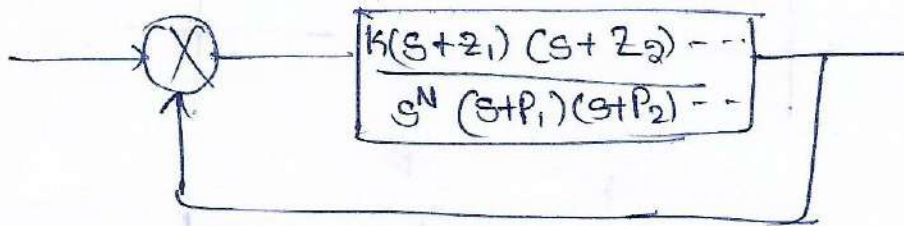 K(S+z₁) (S+Z₂) - - -
S^N (S+P₁)(S+P₂) - -